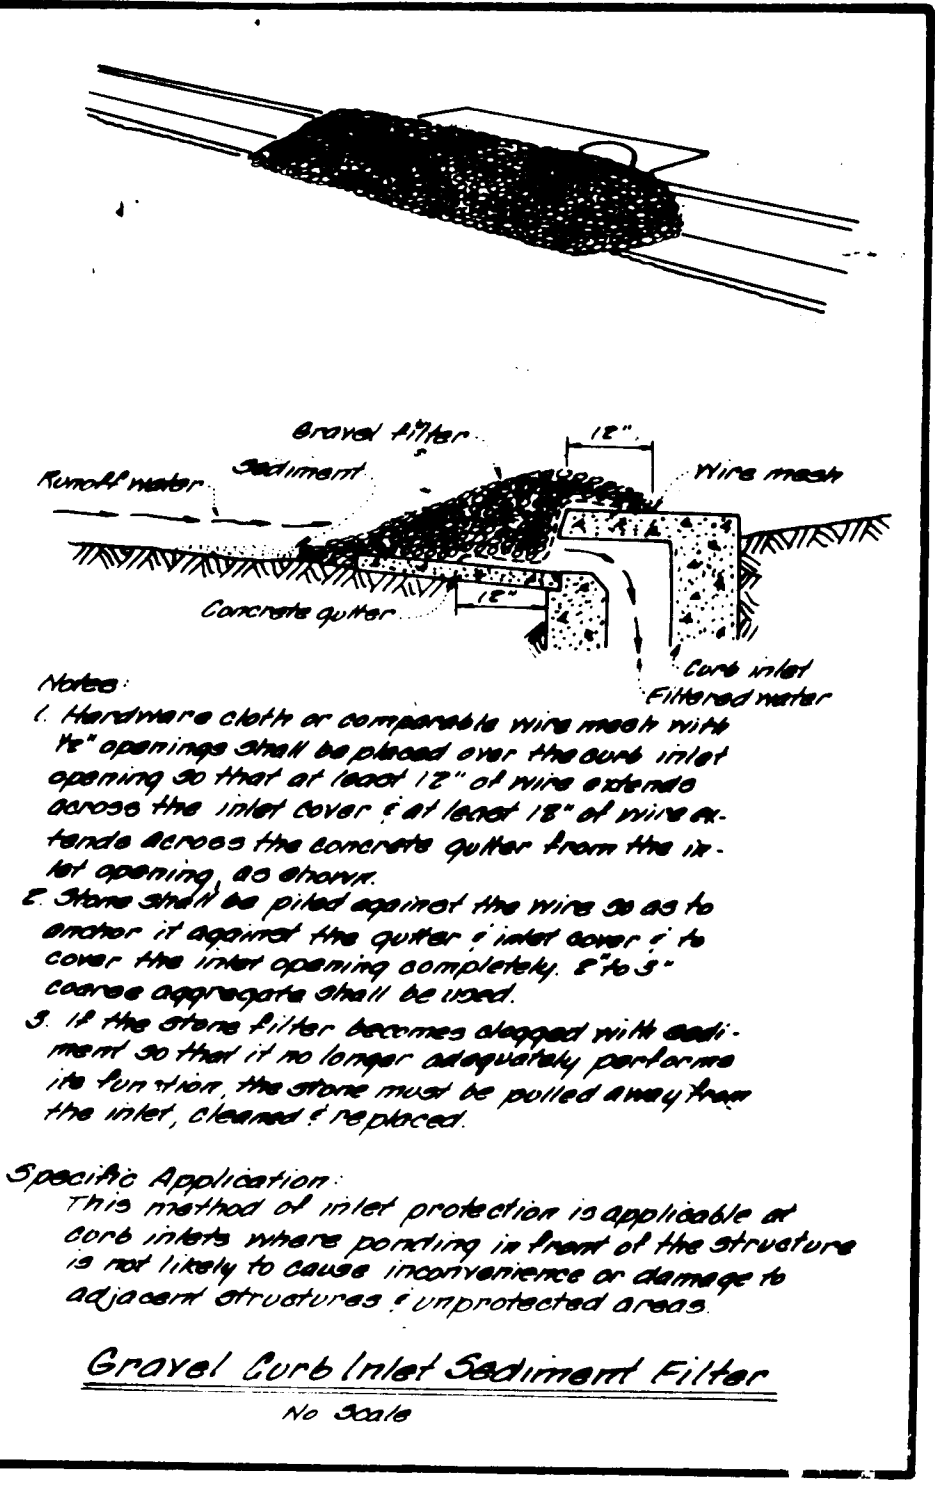 Gravel filter
12"
Sediment
Wire mesh
Runoff water
Concrete gutter
12"
Curb inlet
Filtered water
Notes:
1. Hardware cloth or comparable wire mesh with
1/2" openings shall be placed over the curb inlet
opening so that at least 12" of wire extends
across the inlet cover & at least 12" of wire ex-
tends across the concrete gutter from the in-
let opening, as shown.
2. Stone shall be piled against the wire so as to
anchor it against the gutter & inlet cover & to
cover the inlet opening completely. 2" to 3"
coarse aggregate shall be used.
3. If the stone filter becomes clogged with sedi-
ment so that it no longer adequately performs
its function, the stone must be pulled away from
the inlet, cleaned & replaced.
Specific Application:
This method of inlet protection is applicable at
curb inlets where ponding in front of the structure
is not likely to cause inconvenience or damage to
adjacent structures & unprotected areas.
Gravel Curb Inlet Sediment Filter
No Scale